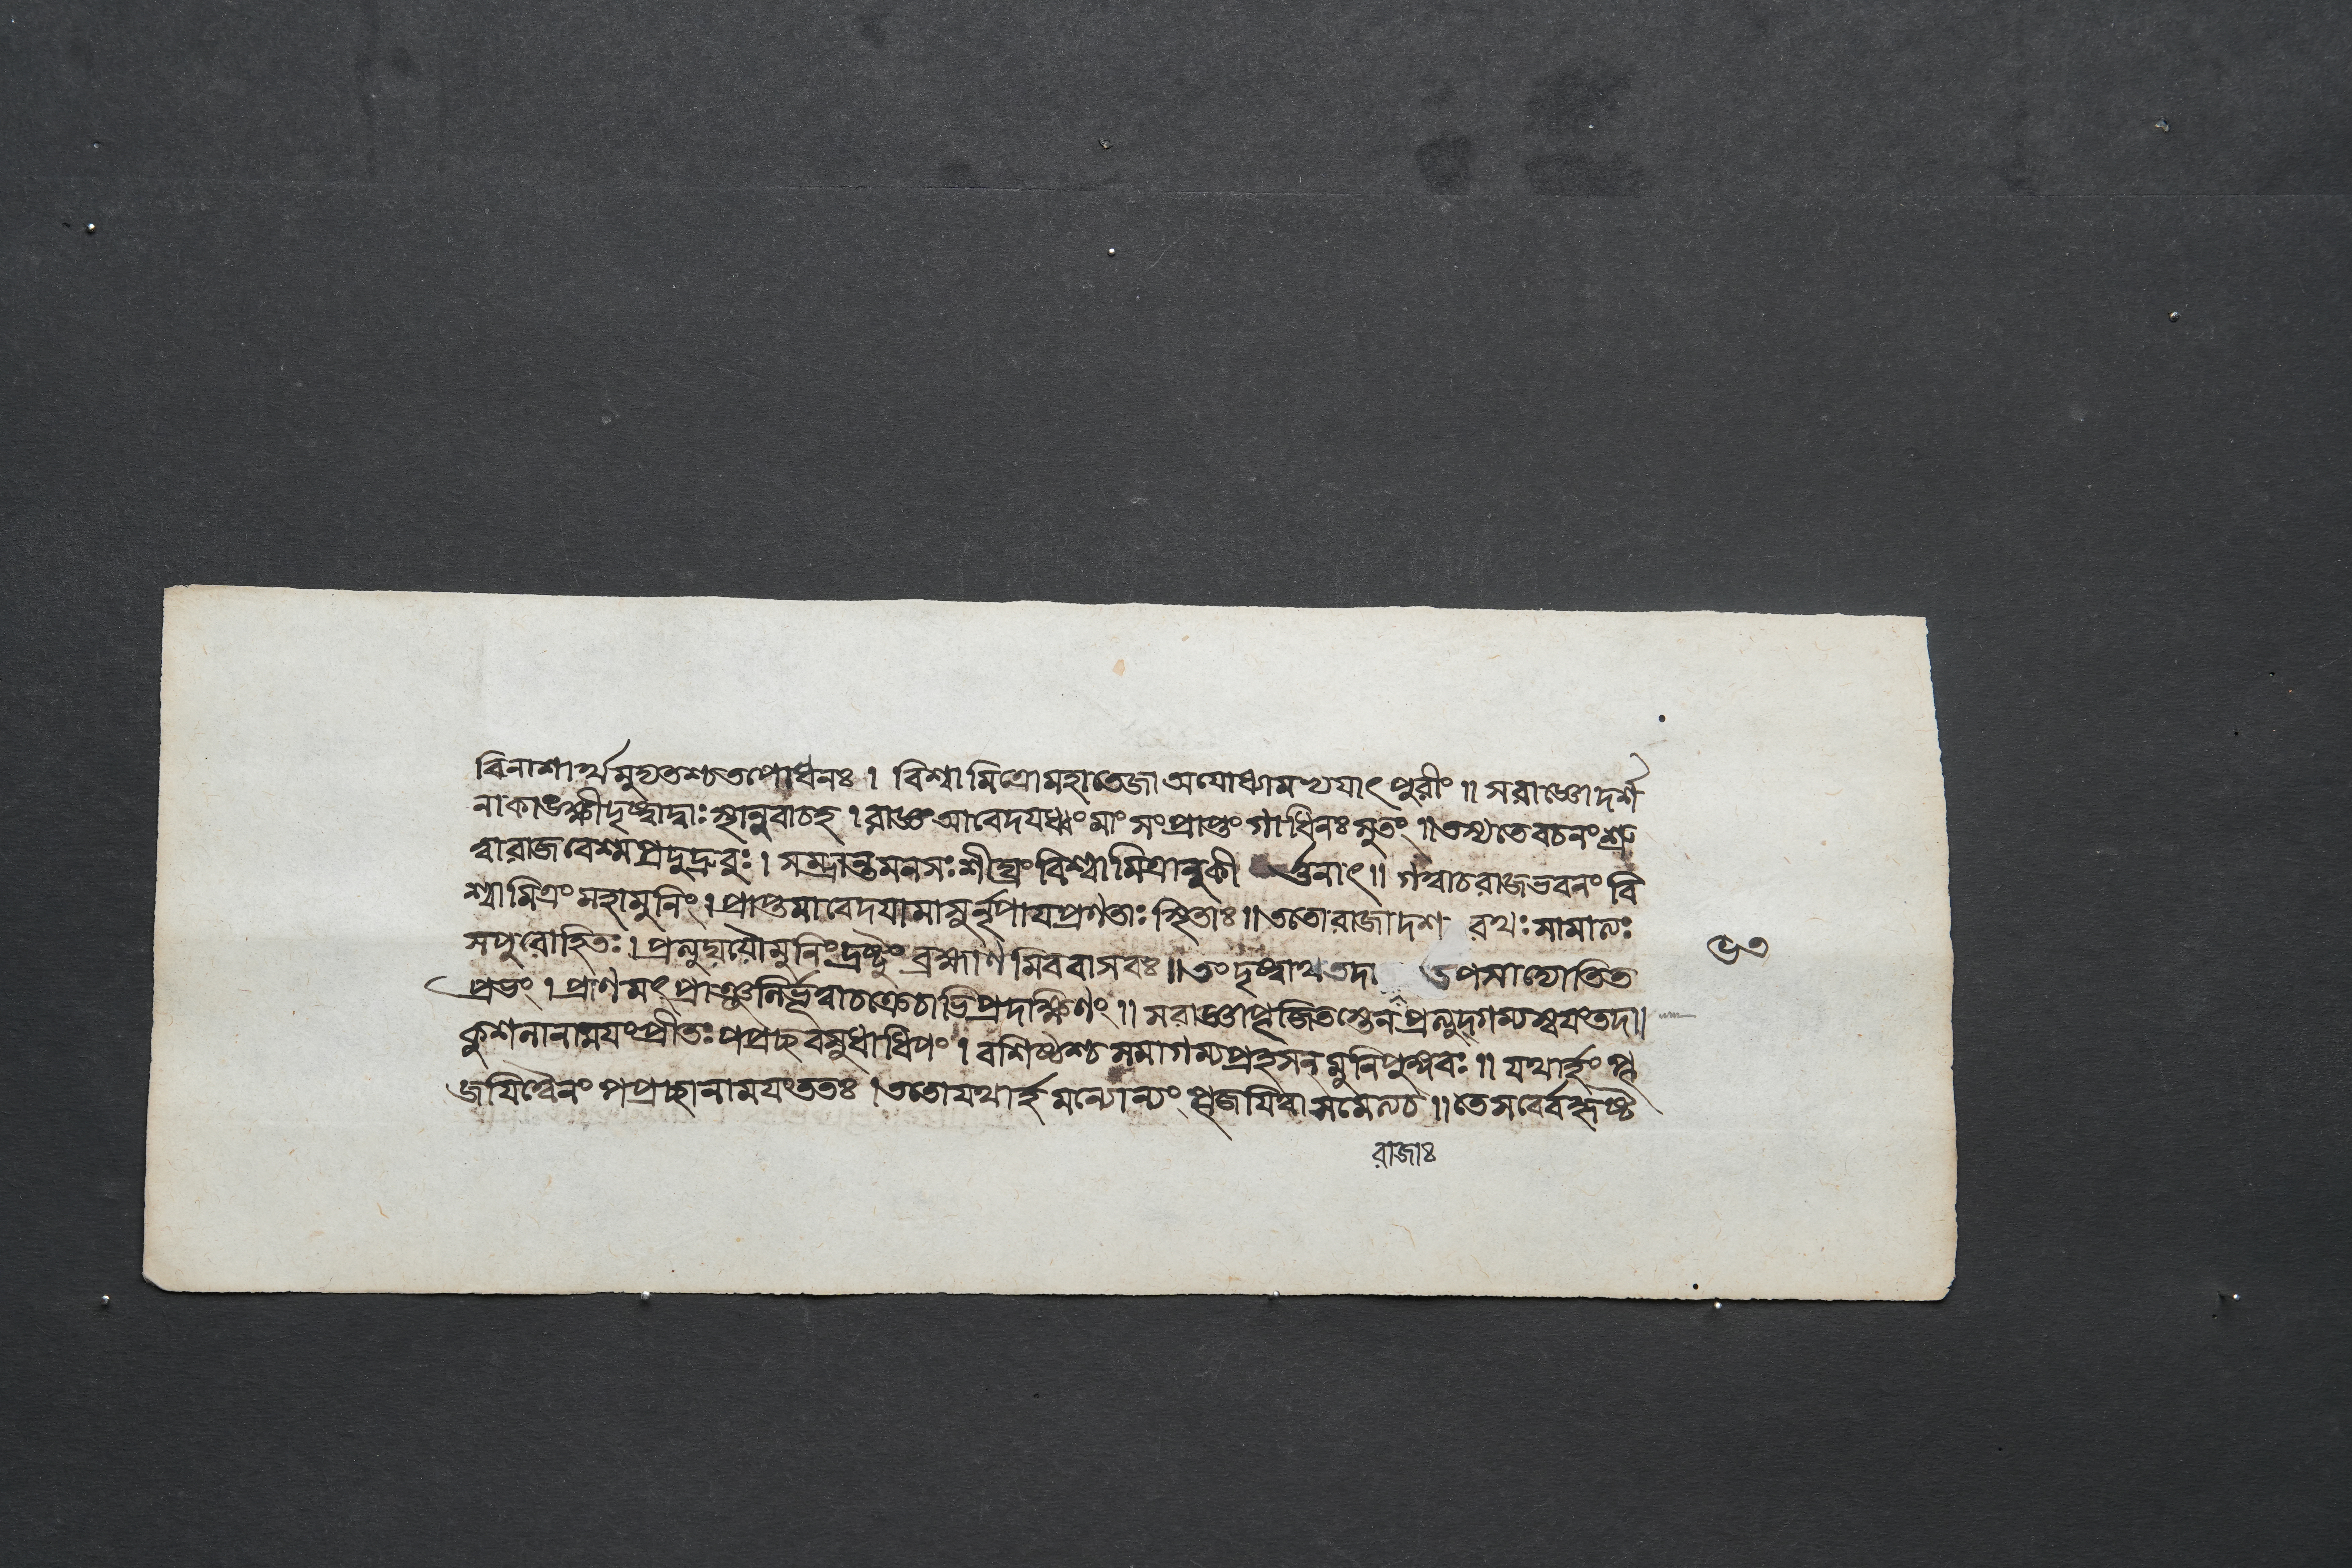 বিনাশার্থমুদ্যতশ্চতপোধনঃ । বিশ্বামিত্রোমহাতেজা অযোধ্যামভ্যযাৎ পুরীং ॥ সরাজ্ঞোদর্শ
নাকাঙ্ক্ষীদৃষ্ট্বাদ্বাঃস্থানুবাচহ । রাজ্ঞ আবেদযধ্বং মাং সংপ্রাপ্তং গাধিনঃ সুতং ॥ তস্যতেবচনংশ্রু
ত্বারাজবেশ্মপ্রদুদ্রুবুঃ । সম্ভ্রান্তমনসঃ শীঘ্রং বিশ্বামিত্রানুকীর্ত্তনাৎ ॥ গত্বাচরাজভবনং বি
শ্বামিত্রং মহামুনিং । প্রাপ্তমাবেদযামাসুর্নৃপাযপ্রণতাঃ স্থিতাঃ ॥ ততোরাজাদশরথঃ সামাত্যঃ
সপুরোহিতঃ । প্রত্যুদ্যযৌমুনিং দ্রষ্টুং ব্রহ্মাণমিববাসবঃ ॥ তং দৃষ্ট্বাথতদা তপসাদ্যোতিত
প্রভং । প্রাণমৎ প্রাঞ্জলির্ভূত্বাচক্রেচাভিপ্রদক্ষিণং ॥ সরাজ্ঞাপূজিতস্তেন প্রত্যুদ্গম্যস্বযংতদা॥
কুশলানাময়ংপ্রীতঃ পপ্রচ্ছবসুধাধিপং । বশিষ্ঠশ্চসমাগম্যপ্রহসন্মুনিপুঙ্গবঃ ॥ যথার্হং পূ
জযিত্বৈনং পপ্রচ্ছানামযংততঃ । ততোযথার্হমন্যোন্যং পূজযিত্বাসমেত্যচ ॥ তেসর্ব্বেহৃষ্ট
রাজাঃ
৮৩